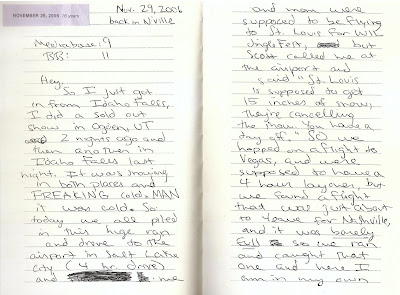 NOVEMBER 26, 2006 /16 years
Nov. 29, 2006
back in N'ville
Mediabase: 9
BB: 11
Hey.
So I just got
in from Idaho Falls,
I did a sold out
show in Ogden, UT
2 nights ago and
then another in
Idaho Falls last
night. It was snowing
in both places and
FREAKING cold. MAN
it was cold. So
today we all piled
in this huge van
and drove to the
airport in Salt Lake
city (4 hr drive)
and me
and mom were
supposed to be flying
to St. Louis for WIL
Jingle Fest, but
Scott called me at
the airport and
said "St. Louis
is supposed to get
15 inches of snow,
they're cancelling
the show. You have a
day off." SO we
hopped on a flight to
Vegas, and were
supposed to have a
4 hour layover, but
we found a flight
that was just about
to leave for Nashville,
and it was barely
full so we ran
and caught that
one and here I
am in my own